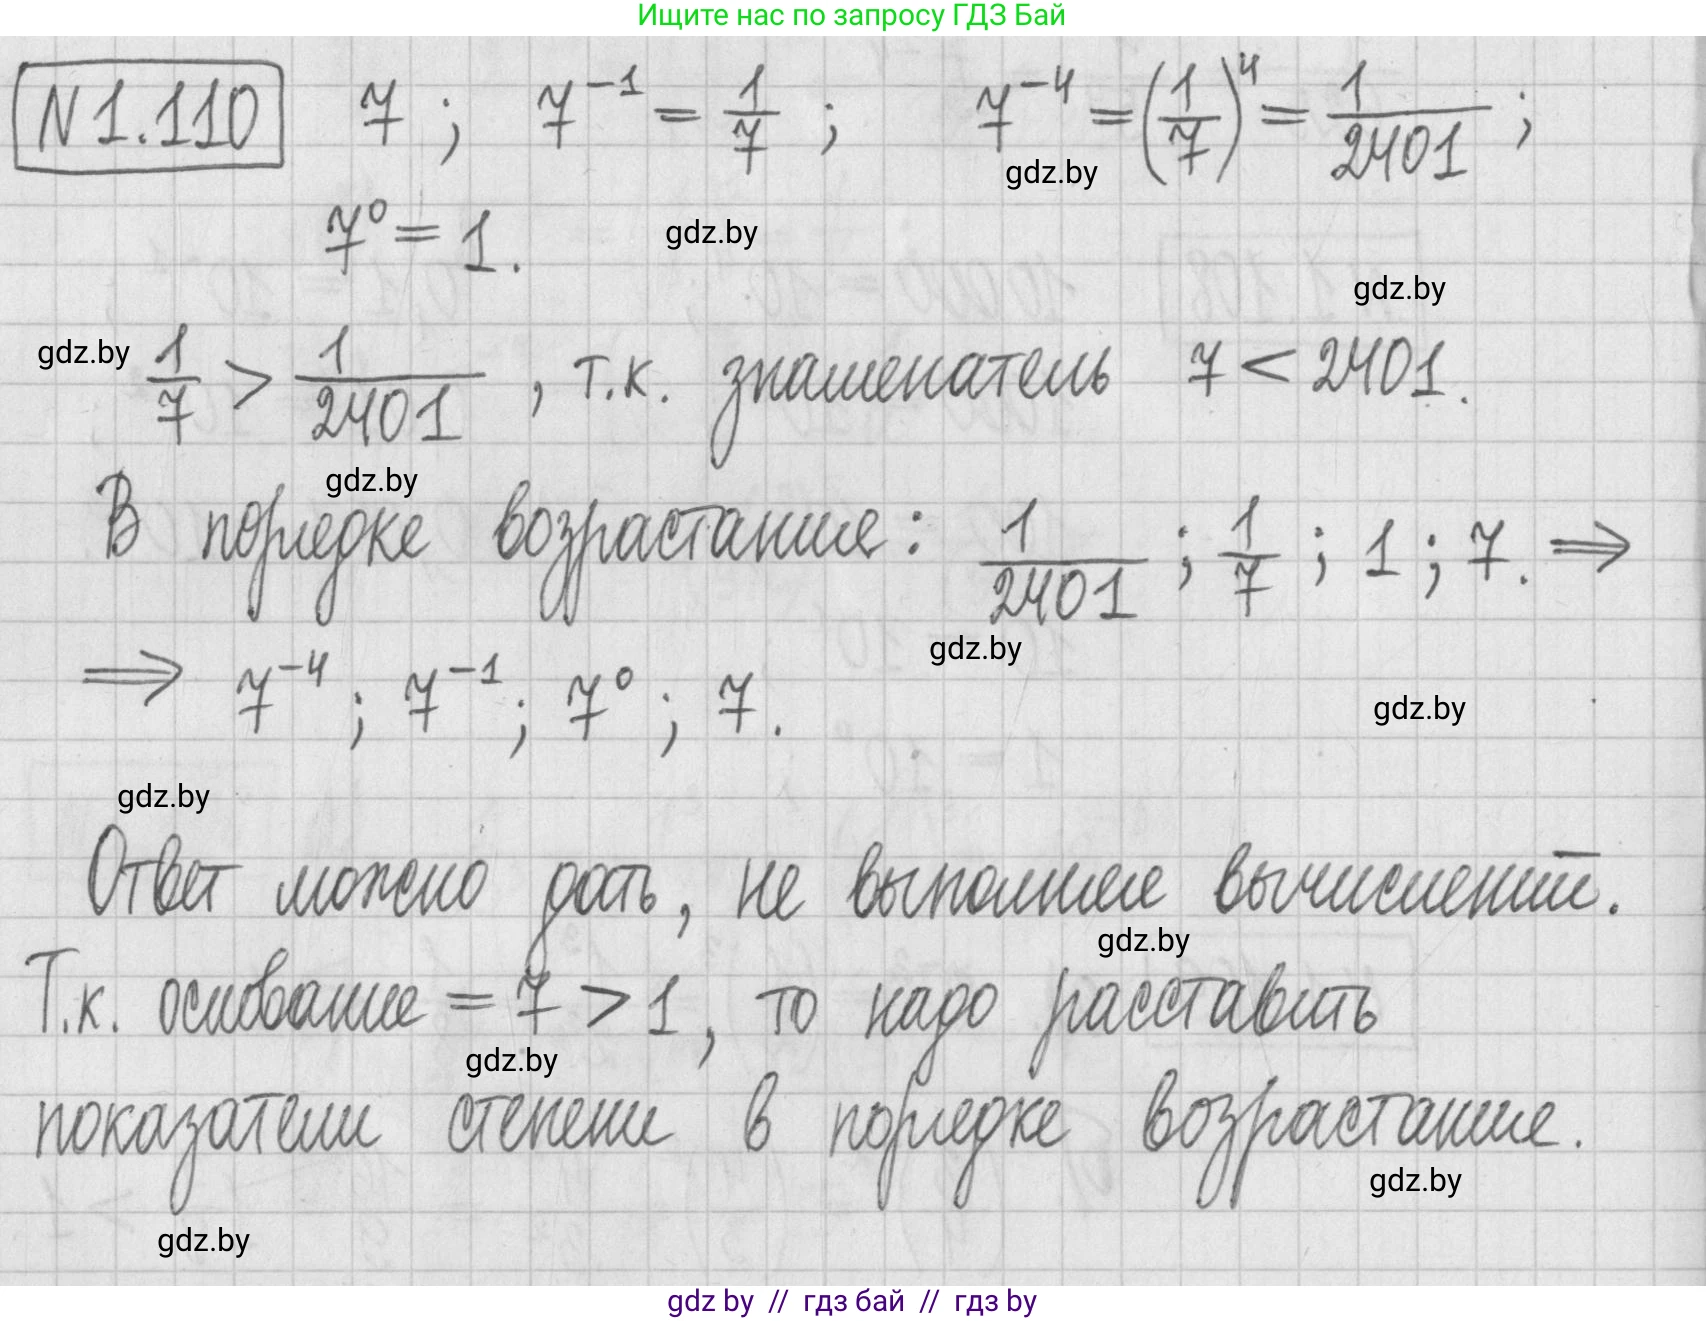 Ищите нас по запросу ГДЗ Бай
N 1.110 7 ; 7⁻¹ = 1/7 ; 7⁻⁴ = (1/7)⁴ = 1/2401 ;
gdz.by
7⁰ = 1. gdz.by
gdz.by
gdz.by 1/7 > 1/2401 , т.к. знаменатель 7 < 2401.
gdz.by
В порядке возрастания: 1/2401 ; 1/7 ; 1 ; 7. ⇒
gdz.by
⇒ 7⁻⁴ ; 7⁻¹ ; 7⁰ ; 7.
gdz.by
gdz.by
Ответ можно дать, не выполняя вычислений.
gdz.by
Т.к. основание = 7 > 1, то надо расставить
gdz.by
показатели степени в порядке возрастания.
gdz.by
gdz.by
gdz by // гдз бай // гдз by